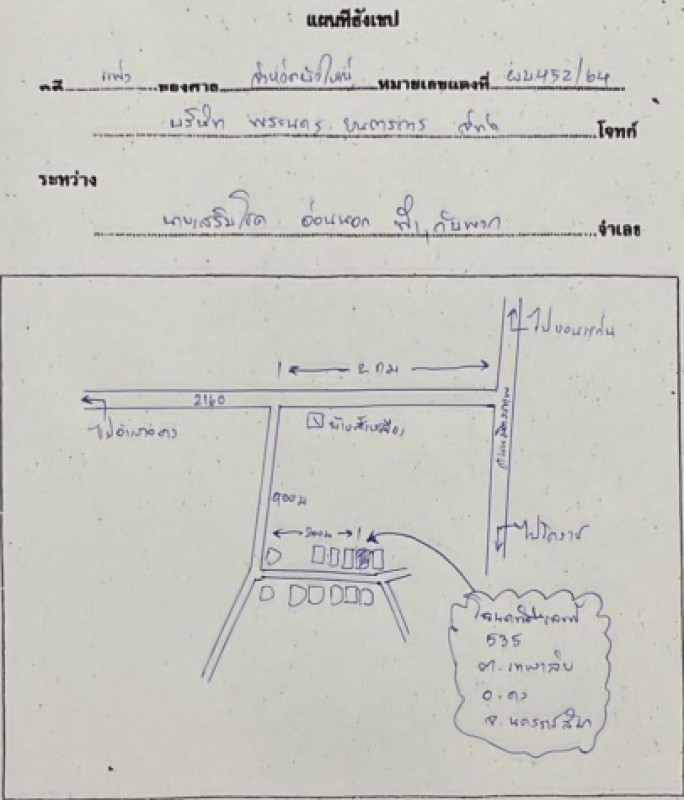 แผนที่สังเขป
คดี แพ่ง ของศาล จังหวัดบัวใหญ่ หมายเลขแดงที่ ผบ452/64
บริษัท พระนครยนตรการ จำกัด โจทก์
ระหว่าง
นายเสริมโชค อ่อนนอก กับพวก จำเลย
ไปขอนแก่น
2 กม
2160
ไปอำเภอคง
ถนนมิตรภาพ
ไปโคราช
โฉนดที่ดินเลขที่
535
ต. เทพาลัย
อ. คง
จ. นครราชสีมา